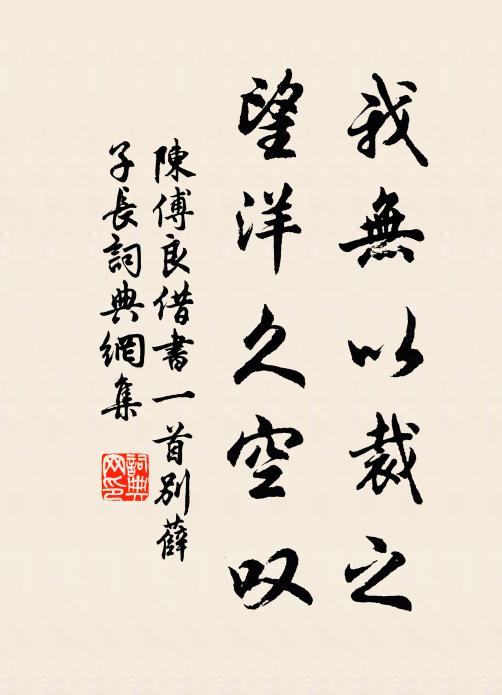 我無以裁之
望洋久空叹
陳傅良借書一首別薛
子長詞典網集
詞典网印